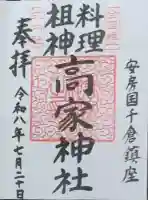 安房国千倉鎮座
料理
祖神
高家神社
奉拝
令和八年七月二十日